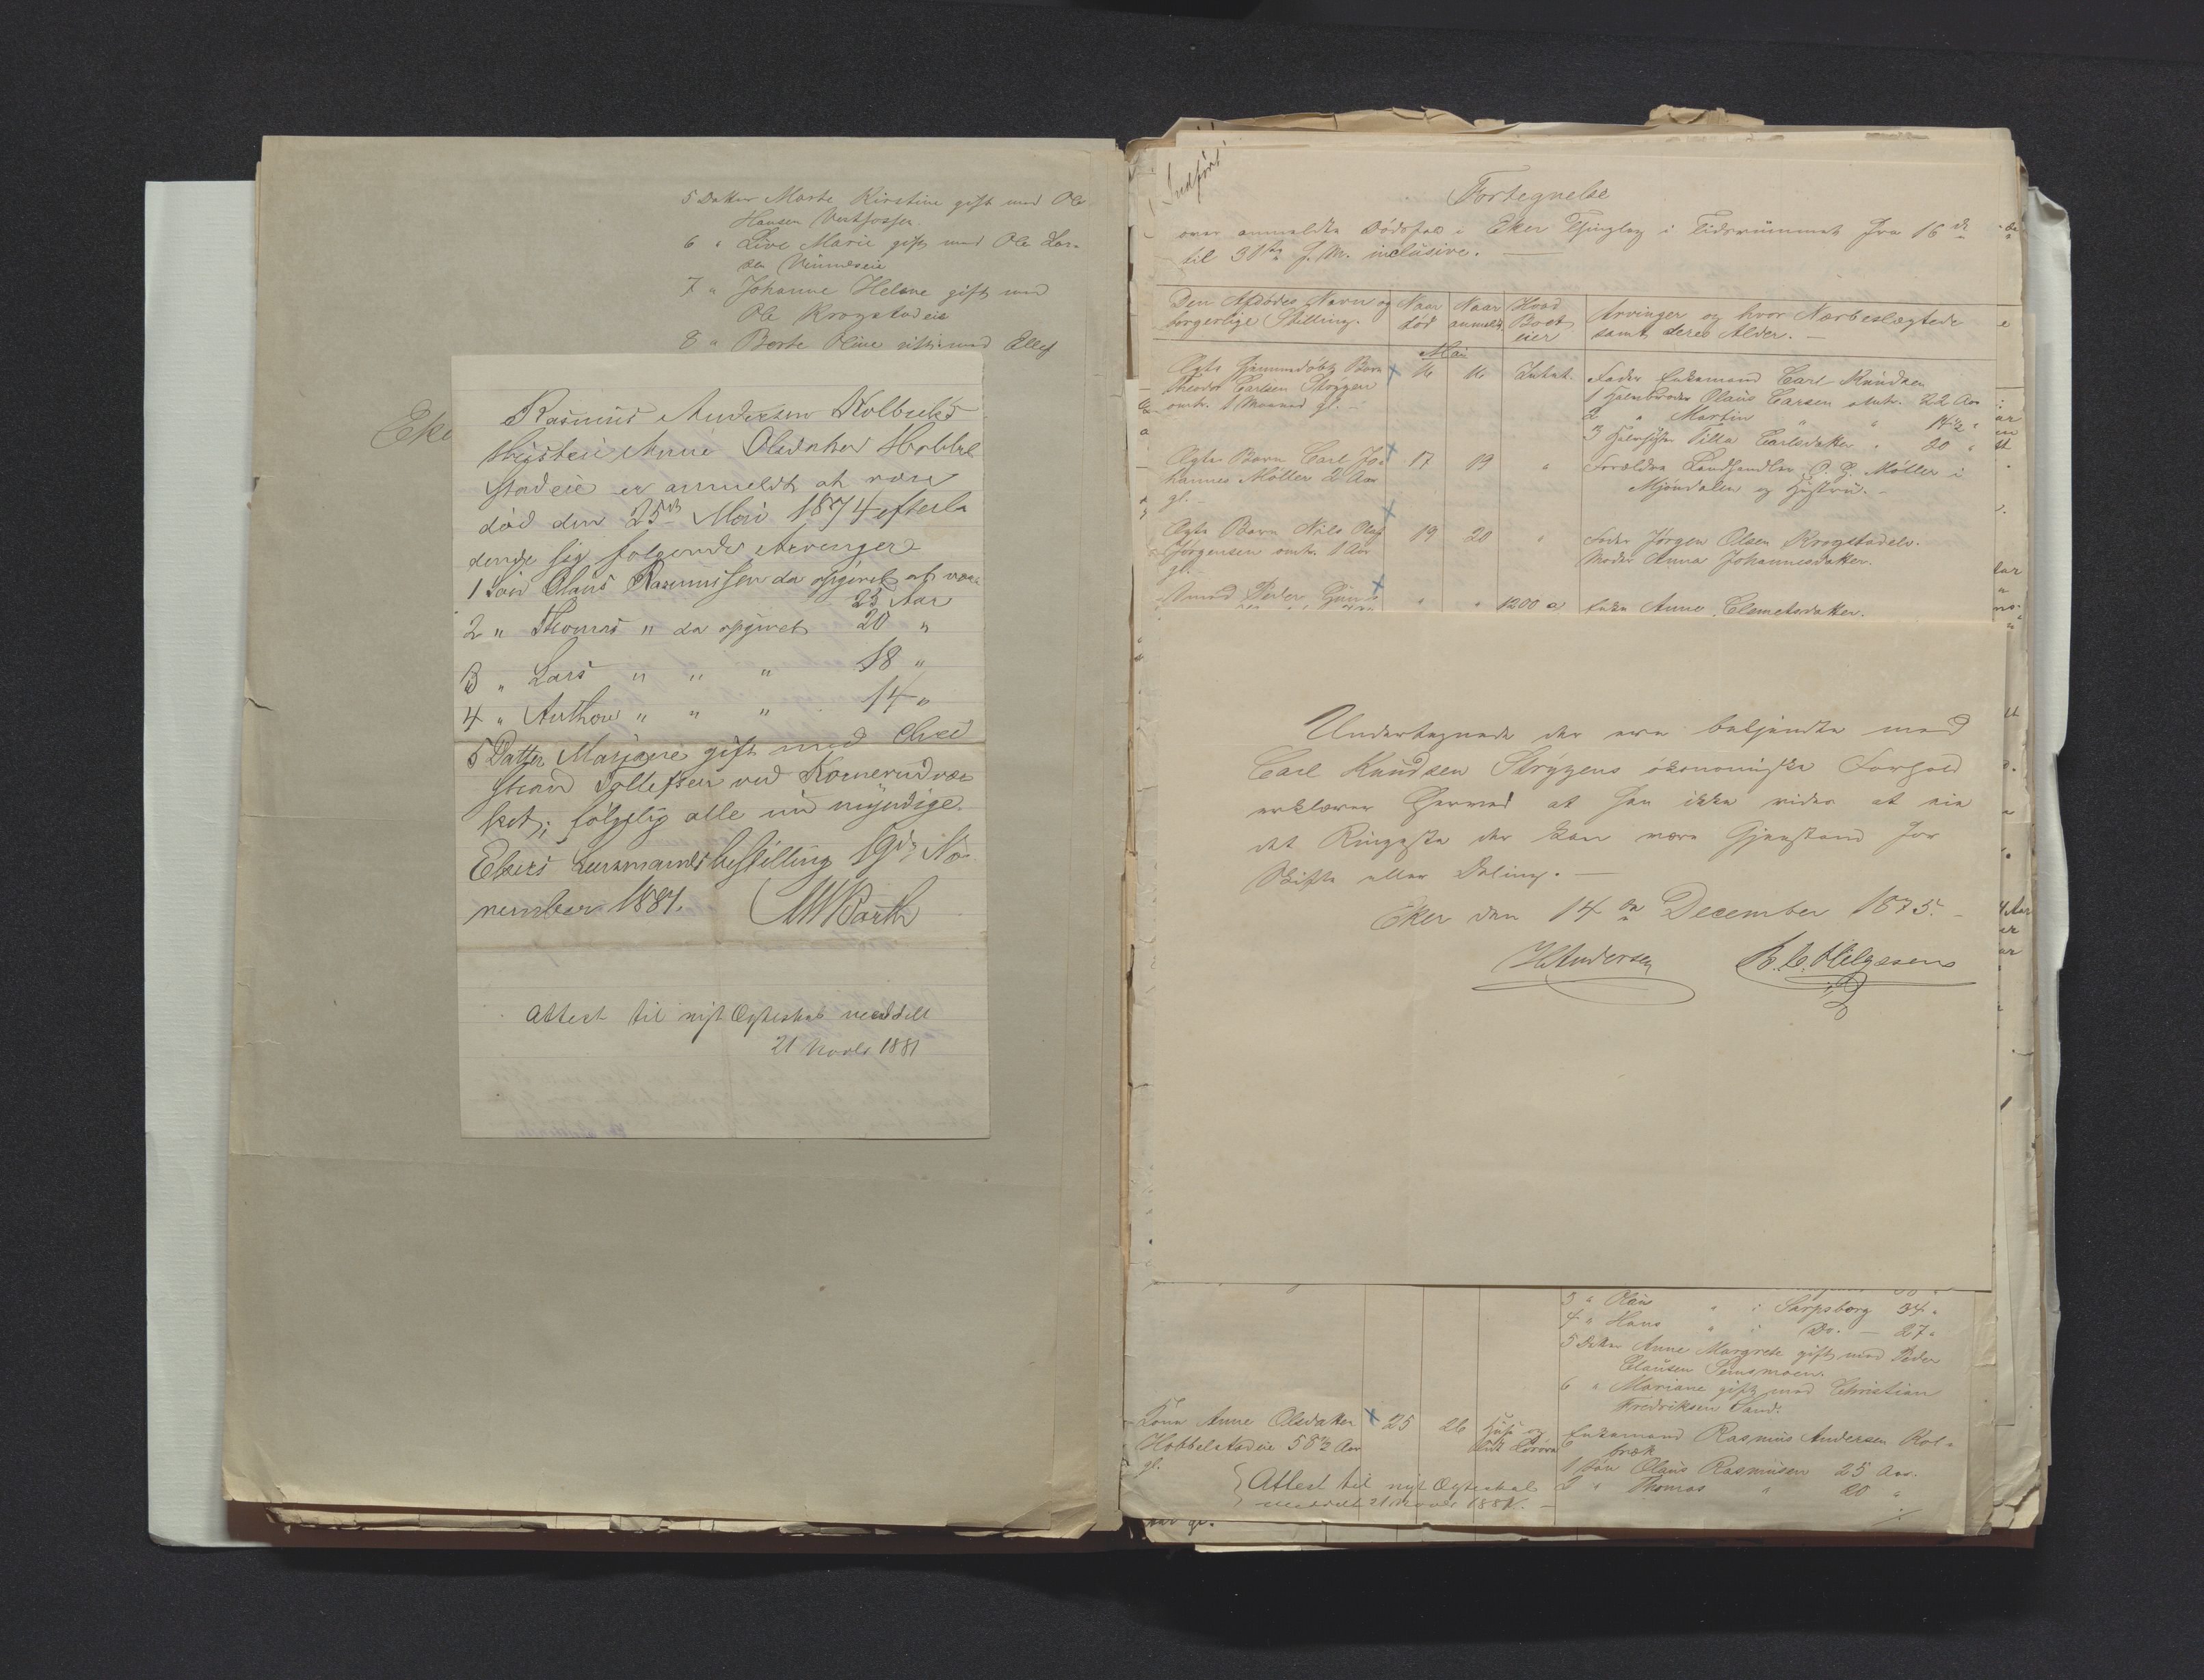 5 Datter Marte Kirstine gift med Ole
Hansen
6 " Live Marie gift med Ole Lar-
sen
7 " Johanne Helene gift med
Ole Krogstadeie
8 " Berte Oline gift med Ellef
Eke
Rasmus Andersen Kolbræks
Hustru Anne Olsdatter Hobbel
stadeie er anmeldt at være
død den 25de Mai 1874 efterla
dende sig følgende Arvinger
1 Søn Olaus Rasmussen da opgivet at være
25 Aar
2 " Thomas " da opgivet 20 "
3 " Lars " " " 18 "
4 " Anthon " " " 14 "
5 Datter Mariane gift med Chri
stian Tollefsen ved Komnerudvær
ket; følgelig alle nu myndige.
Ekers Lensmandsbestilling 19de No-
vember 1881. Barth
Attest til nyt Ægteskab meddelt
21 Novbr 1881
Indført
Fortegnelse
over anmeldte Dødsfald i Eker Thinglag i Tidsrummet fra 16de
til 31te f. M. inclusive.
Den Afdødes Navn og borgerlige Stilling.
Naar død
Naar anmeldt
Hvad Boet eier
Arvinger og hvor Nærbeslægtede
samt deres Alder.
Mai
Ægte hjemmedøbt Barn 16 16 Intet. Fader Enkemand Carl Knudsen
Theodor Carlsen Stryggen 1 Halvbroder Olaus Carlsen omtr. 22 Aar
omtr. 1 Maaned gl. 2 " Martin " " 14½ "
3 Halvsøster Tilla Carlsdatter " 20 "
Ægte Barn Carl Jo- 17 19 " Forældre Landhandler Møller i
hannes Møller 2 Aar Mjøndalen og Hustru.
gl.
Ægte Barn Nils Olaf 19 20 " Fader Jørgen Olsen Krogstadeie.
Jørgensen omtr. 1 Aar Moder Anna Johannesdatter.
gl.
Peder " " 1200 Enke Anne Clemetsdatter.
Undertegnede der ere bekjendte med
Carl Knudsen Stryggens økonomiske Forhold
erklærer herved at han ikke vides at eie
det Ringeste der kan være Gjenstand for
Skifte eller Deling.
Eker den 14de December 1875.
H Andersen B. C. Helgesens
3 " Olaus " i Sarpsborg 34 "
4 " Hans " i Do. 27 "
5 Datter Anne Margrete gift med Peder
Clausen
6 " Mariane gift med Christian
Fredriksen Sand.
Kone Anne Olsdatter 25 26 Huse og Enkemand Rasmus Andersen Kol-
Hobbelstadeie 58½ Aar lidt Løsøre bræk
gl. 1 Søn Olaus Rasmussen 25 Aar.
Attest til nyt Ægteskab 2 " Thomas " 20 "
meddelt 21 Novbr 1881.